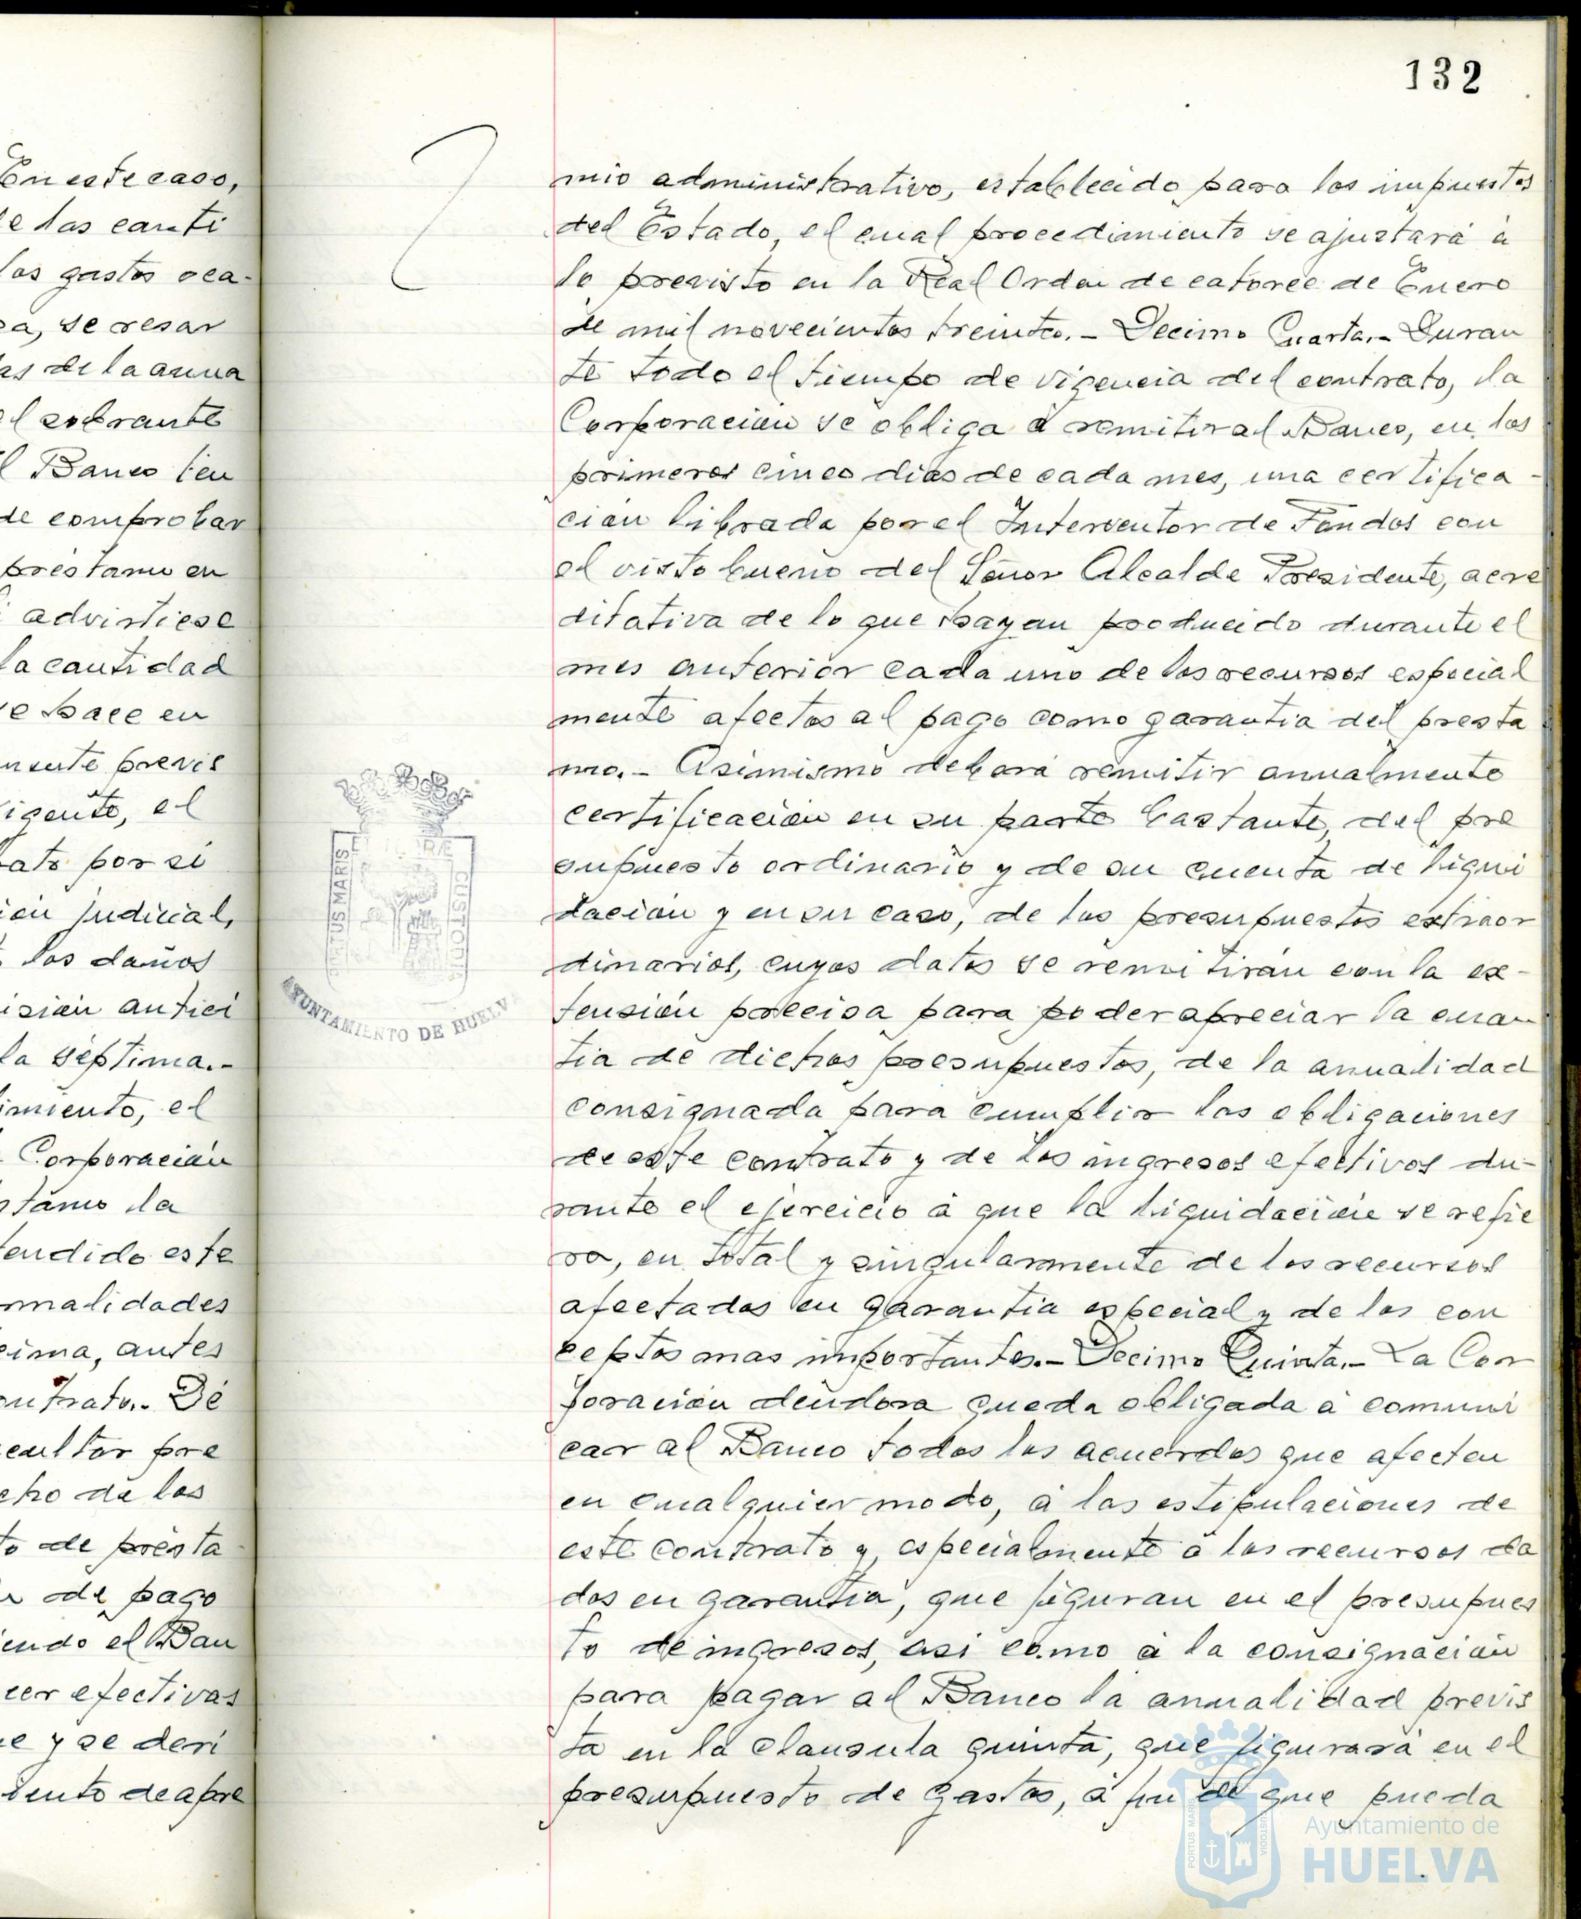 En este caso,
de las canti
los gastos oca-
sa, se resar
as de la anua
el sobrante
l Banco ten
de comprobar
préstamo en
i advirtiese
la cantidad
se hace en
nsente previs
vigente, el
ato por sí
ión judicial,
los daños
isión antici
la séptima.-
imiento, el
Corporación
stamo la
tendido este
rmalidades
cima, antes
ontrato.- Dé
cultar pre
cho de los
to de présta
de pago
iendo el Ban
cer efectivas
ue y se deri
iento de apre
132
mio administrativo, establecido para los impuestos
del Estado, el cual procedimiento se ajustará á
lo previsto en la Real Orden de catorce de Enero
de mil novecientos treinta.- Decimo Cuarta.- Duran
te todo el tiempo de vigencia del contrato, la
Corporación se obliga á remitir al Banco, en los
primeros cinco dias de cada mes, una certifica-
ción librada por el Interventor de Fondos con
el visto bueno del Señor Alcalde Presidente, acre
ditativa de lo que hayan producido durante el
mes anterior cada uno de los recursos especial
mente afectos al pago como garantia del presta
mo.- Asimismo deberá remitir anualmente
certificación en su parte bastante, del pre
supuesto ordinario y de su cuenta de liqui
dación y en su caso, de los presupuestos extraor
dinarios, cuyos datos se remitirán con la ex-
tensión precisa para poder apreciar la cuan
tia de dichos presupuestos, de la anualidad
consignada para cumplir las obligaciones
de este contrato y de los ingresos efectivos du-
rante el ejercicio á que la liquidación se refie
ra, en total y singularmente de los recursos
afectados en garantia especial y de los con
ceptos mas importantes.- Decimo Quinta.- La Cor
poración deudora queda obligada á comuni
car al Banco todos los acuerdos que afecten
en cualquier modo, á las estipulaciones de
este contrato y, especialmente á los recursos da
dos en garantia, que figuran en el presupues
to de ingresos, asi como á la consignación
para pagar al Banco la anualidad previs
ta en la clausula quinta, que figurará en el
presupuesto de gastos, á fin de que pueda
PORTUS MARIS
ET TERRÆ
CUSTODIA
AYUNTAMIENTO DE HUELVA
PORTUS MARIS
CUSTODIA
Ayuntamiento de
HUELVA